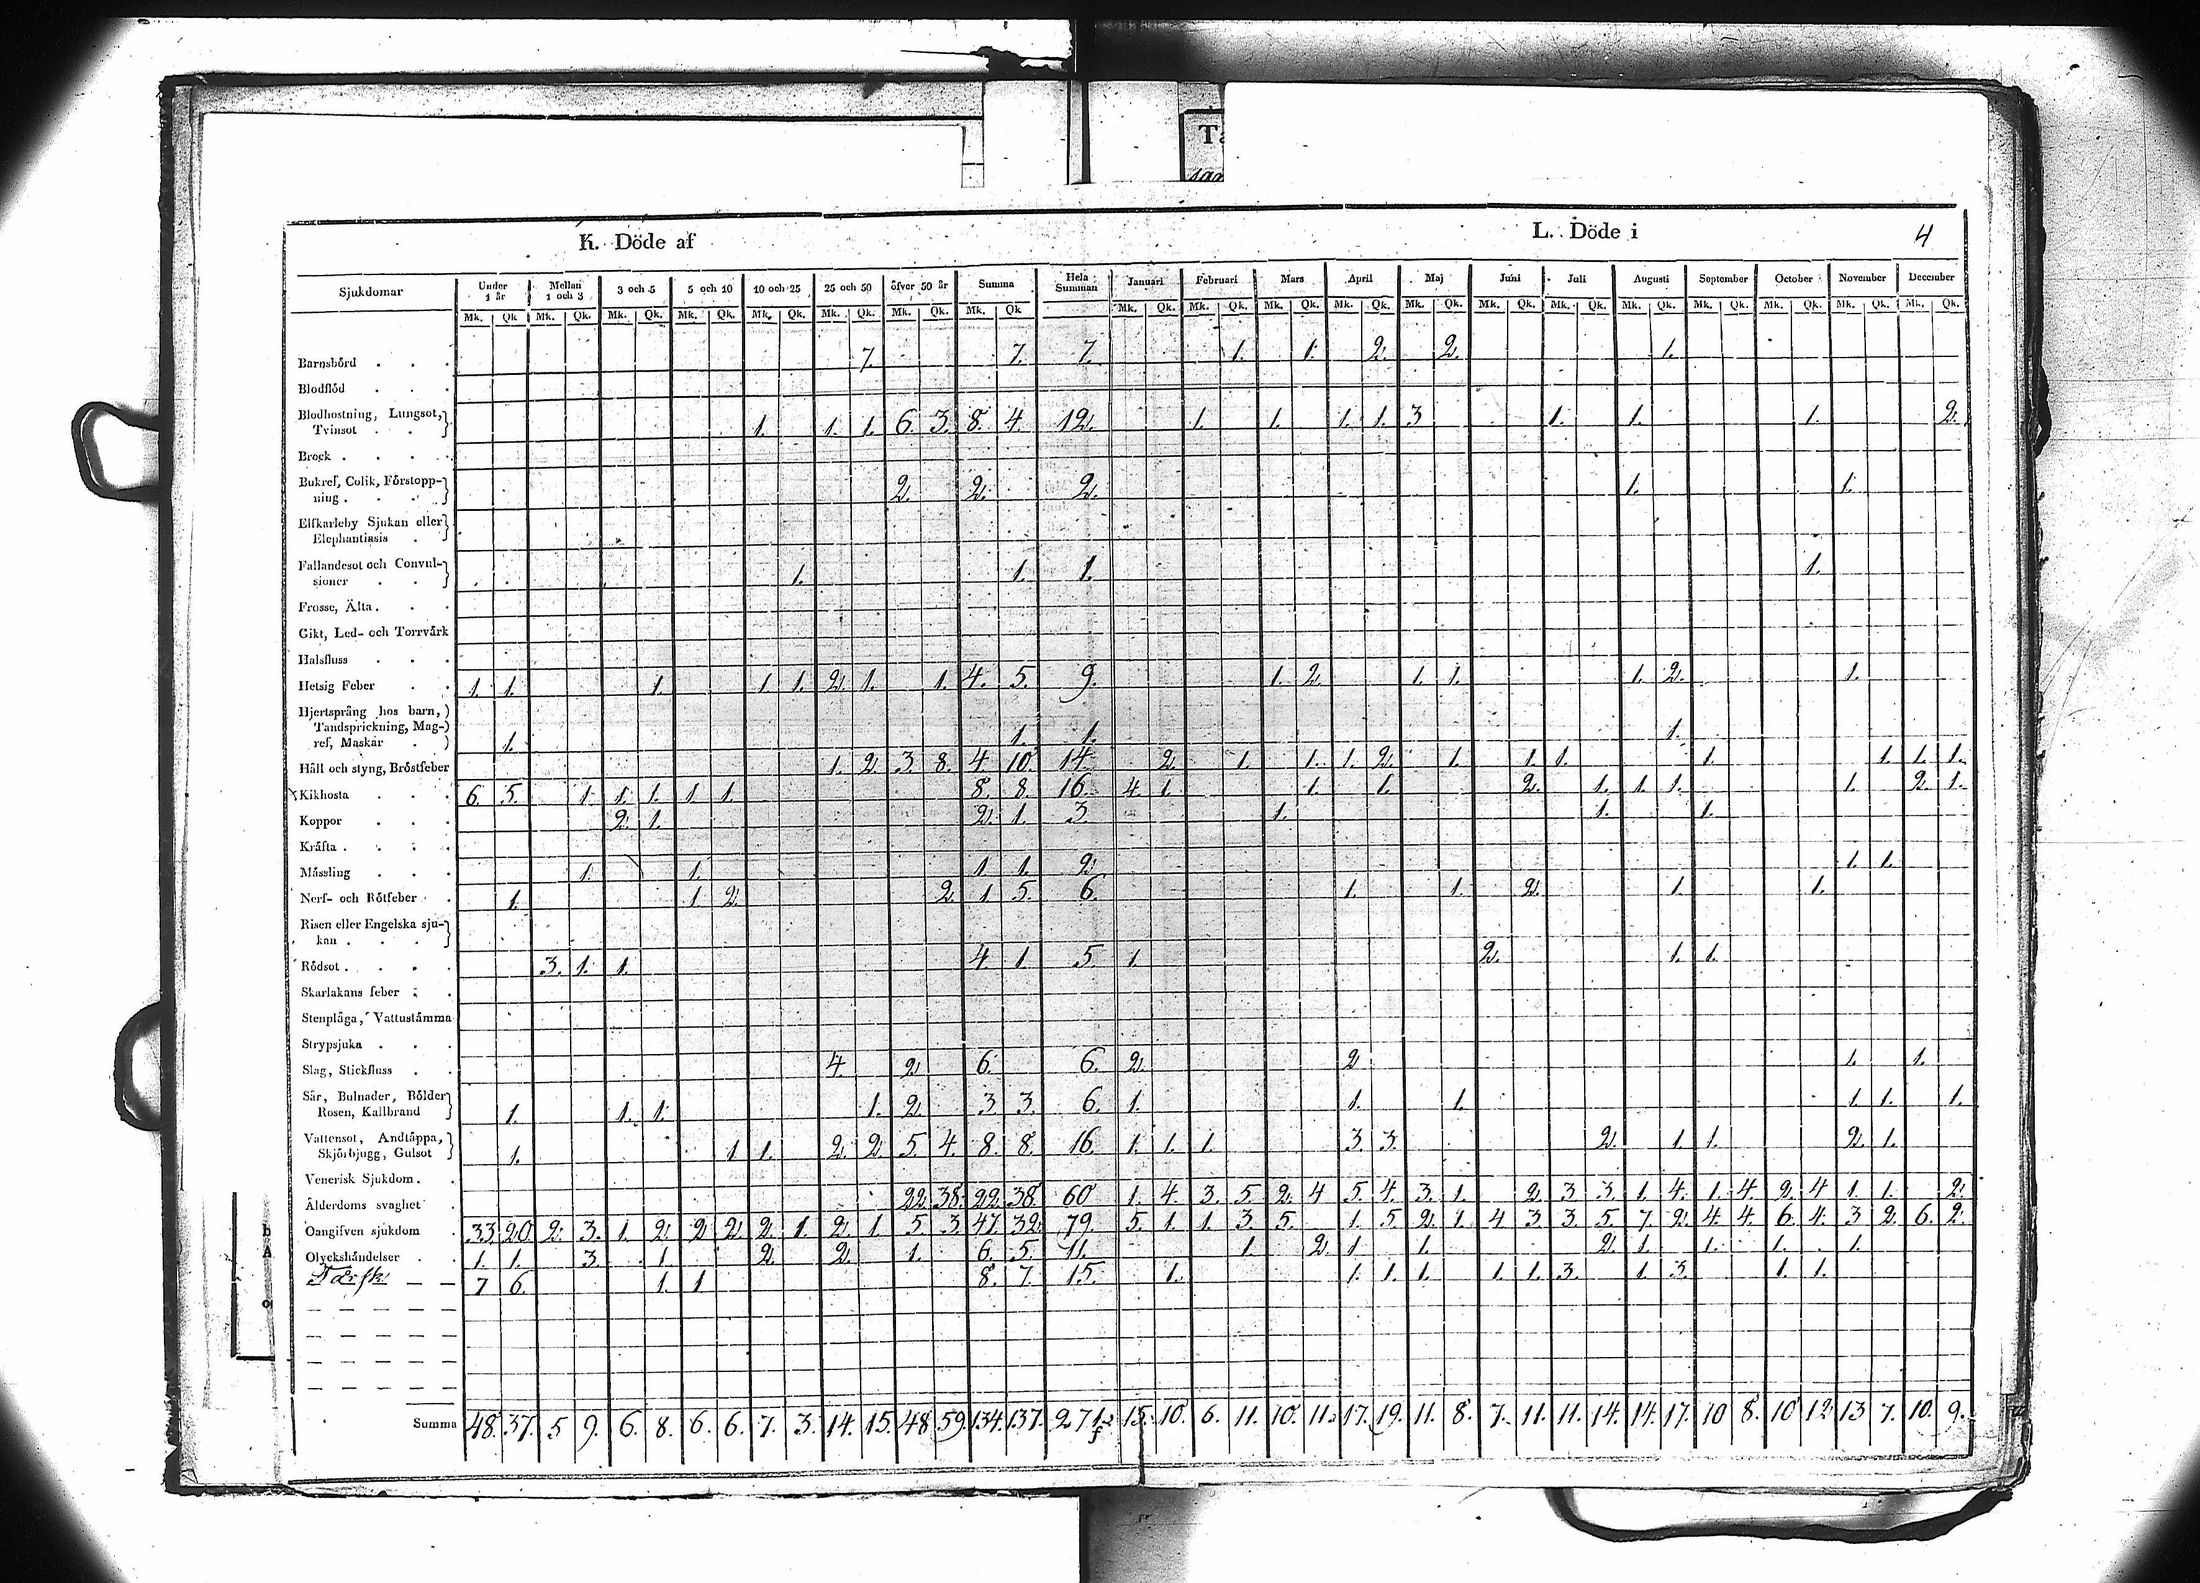 Ta
sam
K. Döde af
L. Döde i
4
Sjukdomar Under 1 år Mellan 1 och 3 3 och 5 5 och 10 10 och 25 25 och 50 öfver 50 år Summa Hela Summan Januari Februari Mars April Maj Juni Juli Augusti September October November December
Mk. Qk Mk. Qk. Mk. Qk. Mk. Qk. Mk. Qk. Mk. Qk. Mk. Qk. Mk. Qk Mk. Qk. Mk. Qk. Mk. Qk. Mk. Qk. Mk. Qk. Mk. Qk. Mk. Qk. Mk. Qk. Mk. Qk. Mk. Qk. Mk. Qk. Mk. Qk.
Barnsbörd . . . 7. 7. 7. 1. 1. 2. 2. 1.
Blodflöd . . .
Blodhostning, Lungsot,
Tvinsot . . 1. 1. 1. 6. 3. 8. 4. 12. 1. 1. 1. 1. 3 1. 1. 1. 2.
Brock . . . .
Bukref, Colik, Förstopp-
ning . . . 2. 2. 2. 1. 1.
Elfkarleby Sjukan eller
Elephantiasis .
Fallandesot och Convul-
sioner . . 1. 1. 1. 1.
Frosse, Älta . . .
Gikt, Led- och Torrvärk
Halsfluss . . .
Hetsig Feber . . 1. 1. 1. 1. 1. 2. 1. 1. 4. 5. 9. 1. 2. 1. 1. 1. 2. 1.
Hjertsprång hos barn,
Tandsprickning, Mag-
ref, Maskar . 1. 1. 1. 1.
Håll och styng, Bröstfeber 1. 2. 3. 8. 4 10. 14. 2. 1. 1. 1. 2. 1. 1. 1. 1. 1. 1. 1.
Kikhosta . . . 6. 5. 1. 1. 1. 1. 1. 8. 8. 16. 4. 1. 1. 1. 2. 1. 1. 1. 1. 2. 1.
Koppor . . . 2. 1. 2. 1. 3. 1. 1. 1.
Kräfta . . . .
Mässling . . . 1. 1. 1. 1. 2. 1. 1.
Nerf- och Rötfeber . . 1. 1. 2. 2. 1. 5. 6. 1. 1. 2. 1. 1.
Risen eller Engelska sju-
kan . . .
Rödsot . . . . 3. 1. 1. 4. 1. 5. 1. 2. 1. 1.
Skarlakans feber . .
Stenplåga, Vattustämma
Strypsjuka . . .
Slag, Stickfluss . . 4. 2. 6. 6. 2. 2. 1. 1.
Sår, Bulnader, Bölder
Rosen, Kallbrand 1. 1. 1. 1. 2. 3. 3. 6. 1. 1. 1. 1. 1. 1.
Vattensot, Andtäppa,
Skjörbjugg, Gulsot 1. 1. 1. 2. 2. 5. 4. 8. 8. 16. 1. 1. 1. 3. 3. 2. 1. 1. 2. 1.
Venerisk Sjukdom . .
Ålderdoms svaghet . 22. 38. 22. 38. 60 1. 4. 3. 5. 2. 4 5. 4. 3. 1. 2. 3. 3. 1. 4. 1. 4. 2. 4 1. 1. 2.
Oangifven sjukdom . 33. 20. 2. 3. 1. 2. 2. 2. 2. 1. 2. 1. 5. 3. 47. 32. 79. 5. 1. 1. 3. 5. 1. 5. 2. 1. 4 3. 3. 5. 7. 2. 4. 4. 6. 4. 3 2. 6. 2.
Olyckshändelser . . 1. 1. 3. 1. 2. 2. 1. 6. 5. 11. 1. 2. 1. 1. 2. 1. 1. 1. 1.
Torsk 7 6. 1. 1. 8. 7. 15. 1. 1. 1. 1. 1. 1. 3. 1. 3. 1. 1.
Summa 48. 37. 5 9. 6. 8. 6. 6. 7. 3. 14. 15. 48 59. 134. 137. 271. 15. 10. 6. 11. 10. 11. 17. 19. 11. 8. 7. 11. 11. 14. 14. 17. 10 8. 10 12. 13 7. 10. 9.